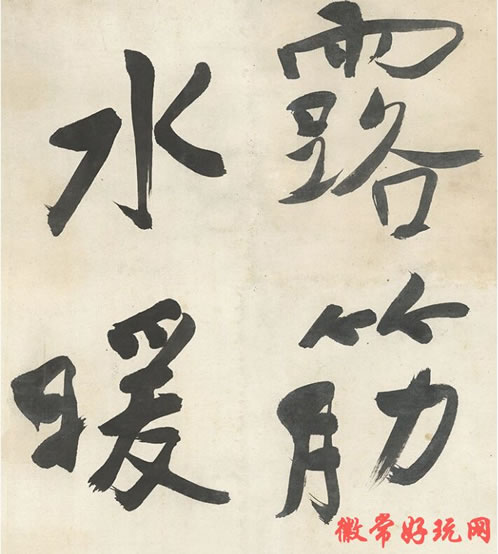 露筋
水暖
徽常好玩网